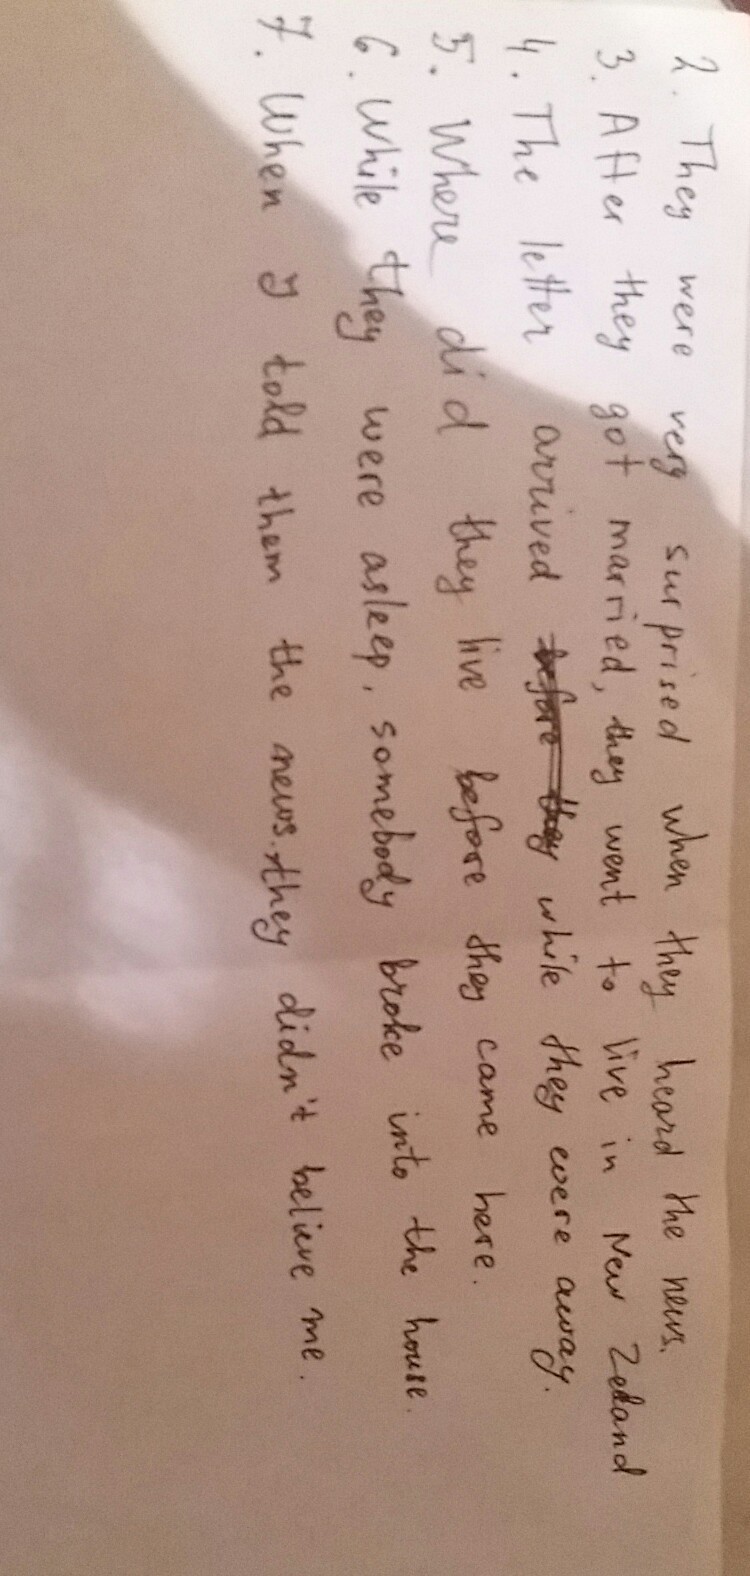 2. They were very surprised when they heard the news.
3. After they got married, they went to live in New Zeland
4. The letter arrived before they while they were away.
5. Where did they live before they came here.
6. While they were asleep, somebody broke into the house.
7. When I told them the news. they didn't believe me.